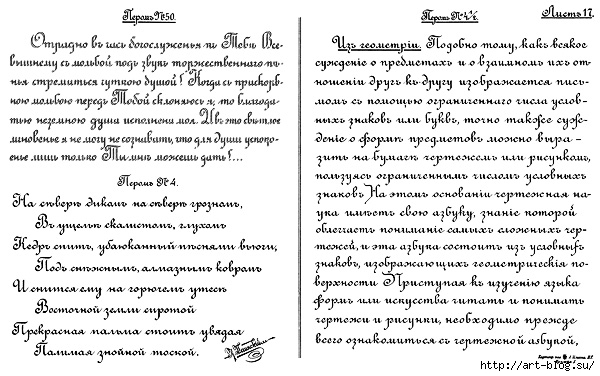 Перомъ №50.
Отрадно въ часъ богослуженья къ Тебѣ Все-
вышнему съ мольбой подъ звукъ торжественнаго пѣ-
нья стремиться чуткою душой! Когда съ прискорб-
ною мольбою передъ Тобой склоняюсь я, то благода-
тью неземною душа исполнена моя. И въ это свѣтлое
мгновенье я не могу не сознавать, что для души успоко-
енье лишь только Ты мнѣ можешь дать!...
Перомъ №4.
На сѣверѣ дикомъ на сѣверѣ грозномъ,
Въ ущельѣ скалистомъ, глухомъ
Кедръ спитъ, убаюканный пѣснями вьюги,
Подъ снѣжнымъ, алмазнымъ ковромъ
И снится ему на горючемъ утесѣ
Восточной земли сиротой
Прекрасная пальма стоитъ увядая
Палимая знойной тоской.
Перомъ №
Листъ 17.
Изъ геометріи. Подобно тому, какъ всякое
сужденіе о предметахъ и о взаимномъ ихъ от-
ношеніи другъ къ другу изображается пись-
момъ съ помощью ограниченнаго числа услов-
ныхъ знаковъ или буквъ, точно также суж-
деніе о формѣ предметовъ можно выра-
зить на бумагѣ чертежомъ или рисункомъ,
пользуясь ограниченнымъ числомъ условныхъ
знаковъ На этомъ основаніи чертежная на-
ука имѣетъ свою азбуку, знаніе которой
облегчаетъ пониманіе самыхъ сложныхъ чер-
тежей, и эта азбука состоитъ изъ условныхъ
знаковъ, изображающихъ геометрическія по-
верхности Приступая къ изученію языка
формъ или искусства читать и понимать
чертежи и рисунки, необходимо прежде
всего ознакомиться съ чертежной азбукой,
http://art-blog.su/